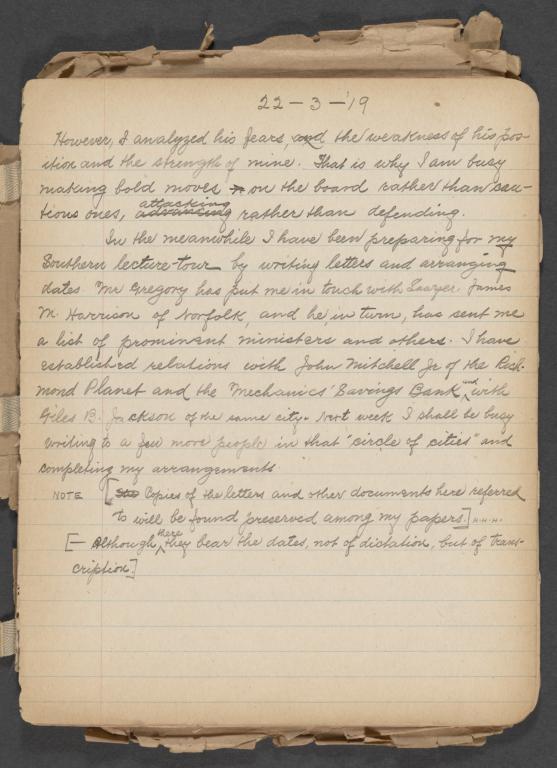 22-3-'19
However, I analyzed his fears, and the weakness of his pos-
ition and the strength of mine. That is why I am busy
making bold moves on the board rather than cau-
attacking
tious ones, advancing rather than defending.
In the meanwhile I have been preparing for my
Southern lecture-tour by writing letters and arranging
dates. Mr Gregory has put me in touch with Lawyer James
M. Harrison of Norfolk, and he, in turn, has sent me
a list of prominent ministers and others. I have
established relations with John Mitchell Jr of the Rich-
mond Planet and the Mechanics' Savings Bank and with
Giles B. Jackson of the same city. Next week I shall be busy
writing to a few more people in that "circle of cities" and
completing my arrangements.
NOTE [Copies of the letters and other documents here referred
to will be found preserved among my papers.] H.H.H.
[— Although there they bear the dates, not of dictation, but of trans-
cription.]